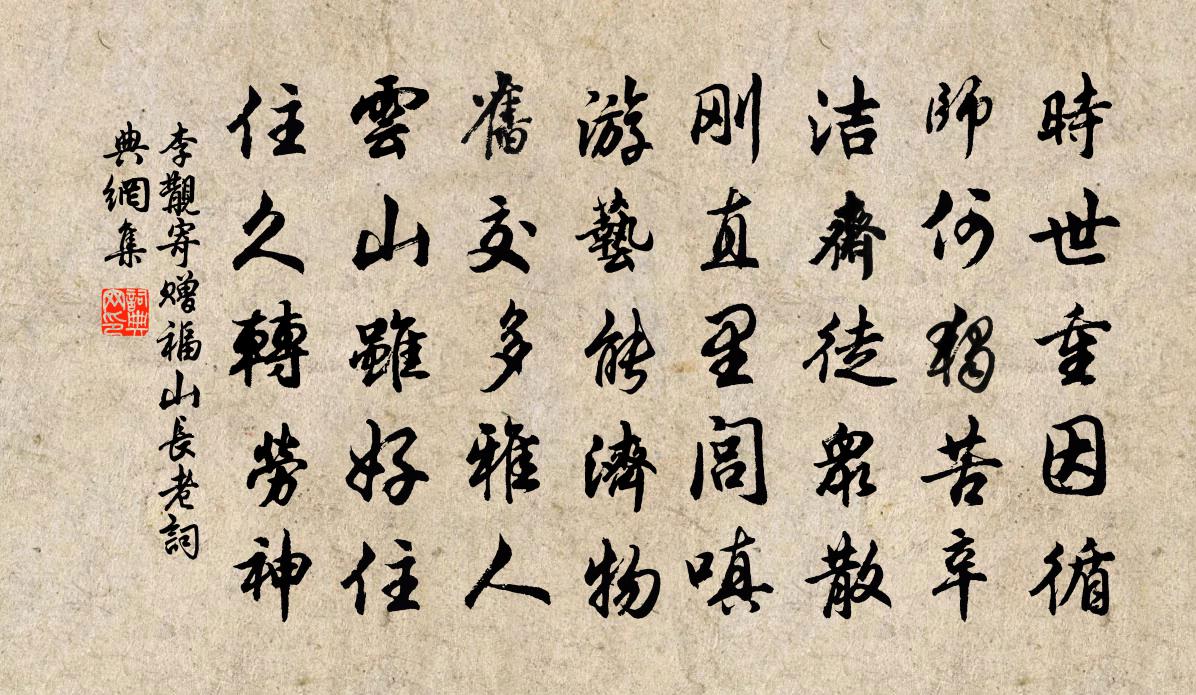 時世重因循
師何獨苦辛
洁齋徒眾散
剛直里閭嗔
游藝能濟物
舊交多雅人
雲山雖好住
住久轉勞神
李覯寄贈福山長老詞
典網集
詞典
网印